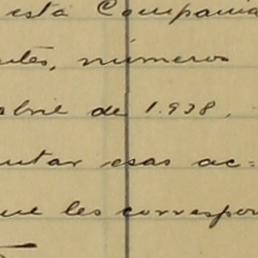 esta Compania
ntes, números
abril de 1.938,
utar esas ac=
que les correspon